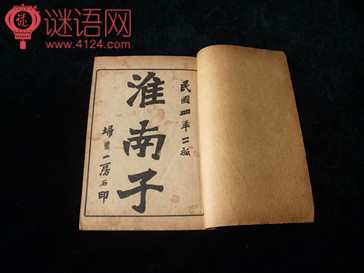 谜语网
www.4124.com
民國四年二版
淮南子
埽葉山房石印